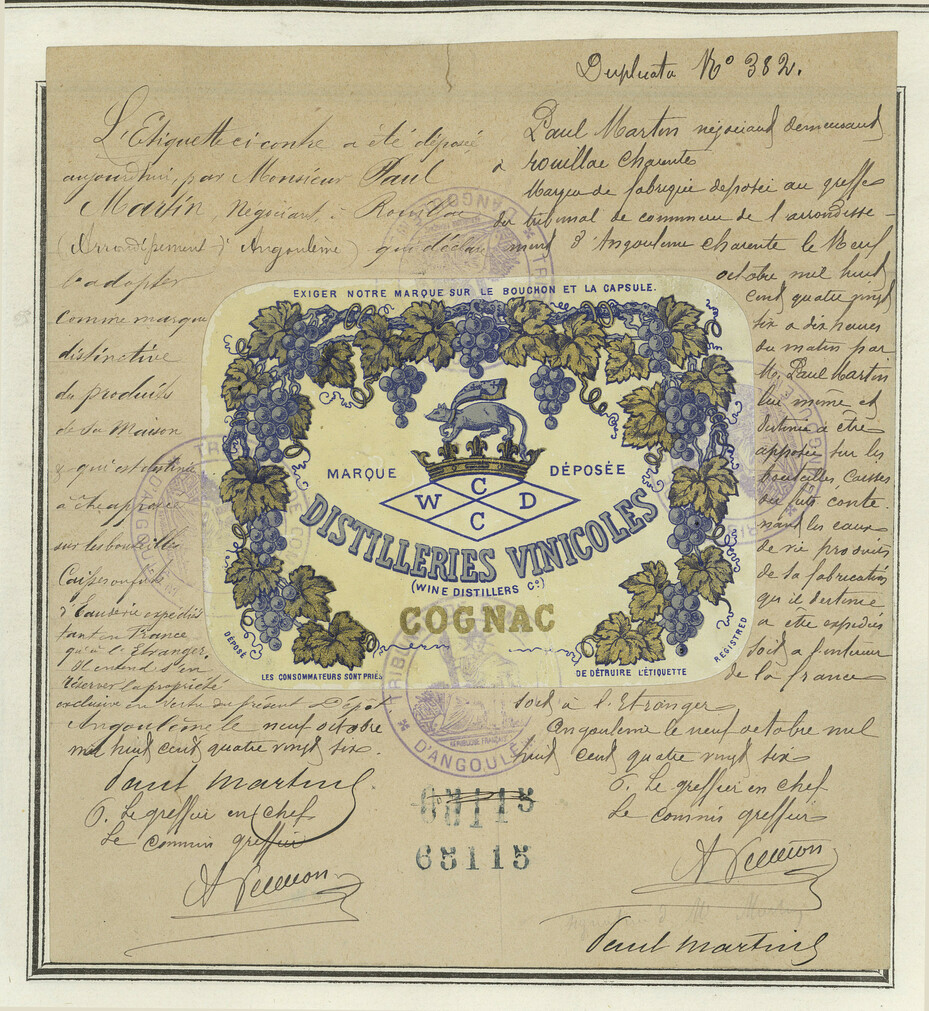 Duplicata No 382.
L'Etiquette ci contre a été déposée
aujourd'hui, par Monsieur Paul
Martin, Négociant, à Rouillac
(Arrondissement d'Angoulême) qui déclare
l'adopter
comme marque
distinctive
des produits
de sa Maison
& qui est destinée
à être apposée
sur les bouteilles
Caisses ou fûts
d'Eau de vie expédiés
tant en France
qu'à l'Etranger.
Il entend s'en
réserver la propriété
exclusive en vertu du présent dépôt
Angoulême le neuf octobre
mil huit cent quatre vingt six.
Paul Martin
P. Le greffier en chef
Le commis greffier
Paul Martin négociant demeurant
à rouillac charente
Marque de fabrique déposée au greffe
du tribunal de commerce de l'arrondisse-
ment d'Angouleme charente le Neuf
octobre mil huit
cent quatre vingt
six a dix heures
du matin par
Mr. Paul Martin
lui même et
destinée a être
apposée sur les
bouteilles, Caisses
ou futs conte-
nant les eaux
de vie produits
de sa fabrication
qu'il destine
a être expédiés
soit a l'interieur
de la france
soit a l'Etranger
Angouleme le neuf octobre mil
huit cent quatre vingt six
P. Le greffier en chef
Le commis greffier
Paul Martin
EXIGER NOTRE MARQUE SUR LE BOUCHON ET LA CAPSULE.
MARQUE DÉPOSÉE
C
W D
C
DISTILLERIES VINICOLES
(WINE DISTILLERS Co)
COGNAC
DÉPOSÉ
REGISTRED
LES CONSOMMATEURS SONT PRIÉS DE DÉTRUIRE L'ÉTIQUETTE
RÉPUBLIQUE FRANÇAISE
D'ANGOULÊME
65115